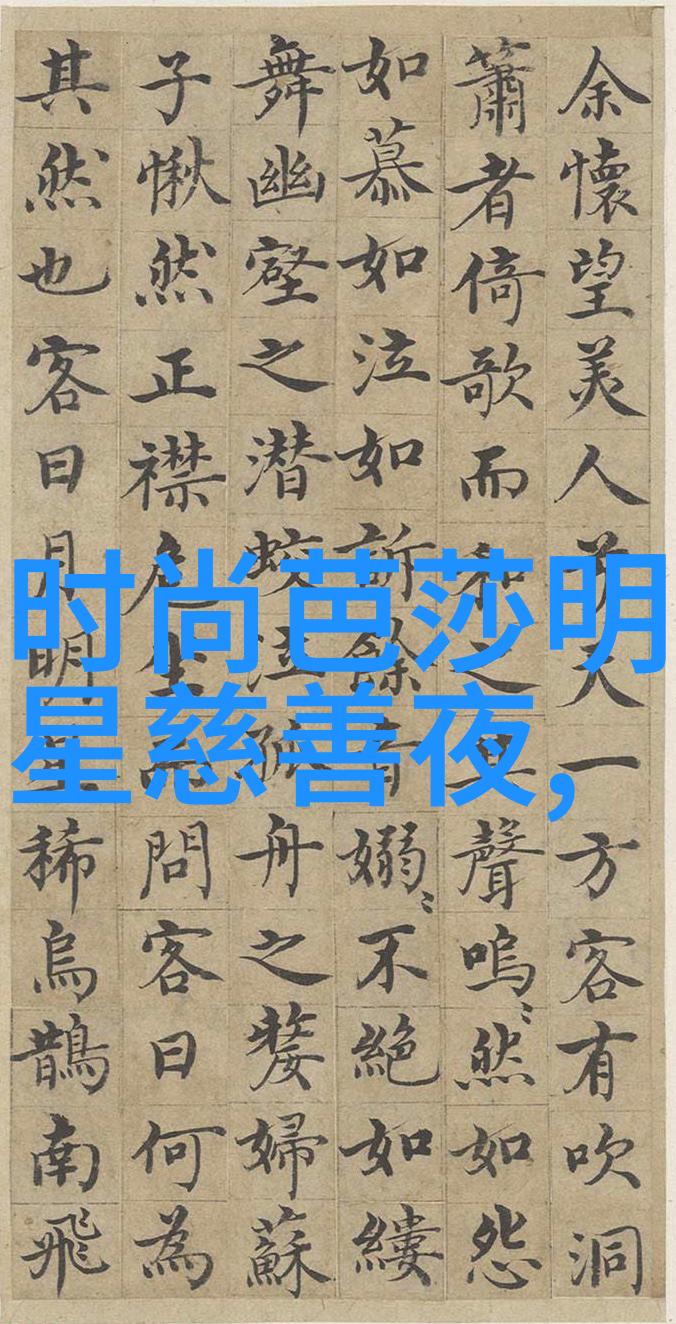 余懷望美人兮天一方客有吹洞
簫者倚歌而和之其聲嗚〻然如怨
如慕如泣如訴餘音嫋〻不絕如縷
舞幽壑之潜蛟泣孤舟之嫠婦蘇
子愀然正襟危坐而問客曰何為
其然也客曰月明星稀烏鵲南飛
时尚芭莎明
星慈善夜,